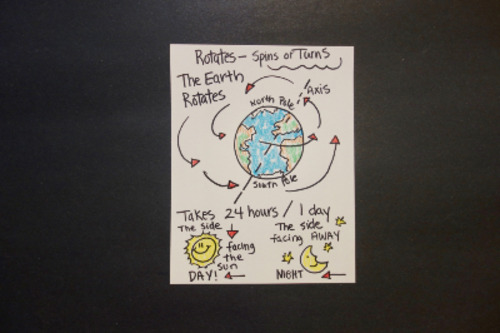 Rotates – Spins or Turns
The Earth
Rotates
Axis
North Pole
South Pole
Takes 24 hours / 1 day
The side
facing
the
sun
DAY!
The side
facing AWAY
NIGHT